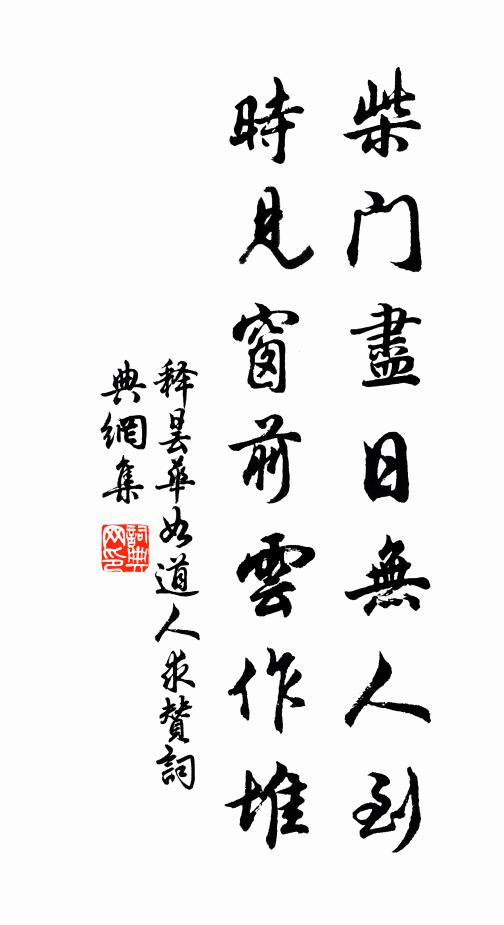 柴门盡日無人到
時見窗前雲作堆
释曇華如道人求賛詞
典網集
詞典
网印